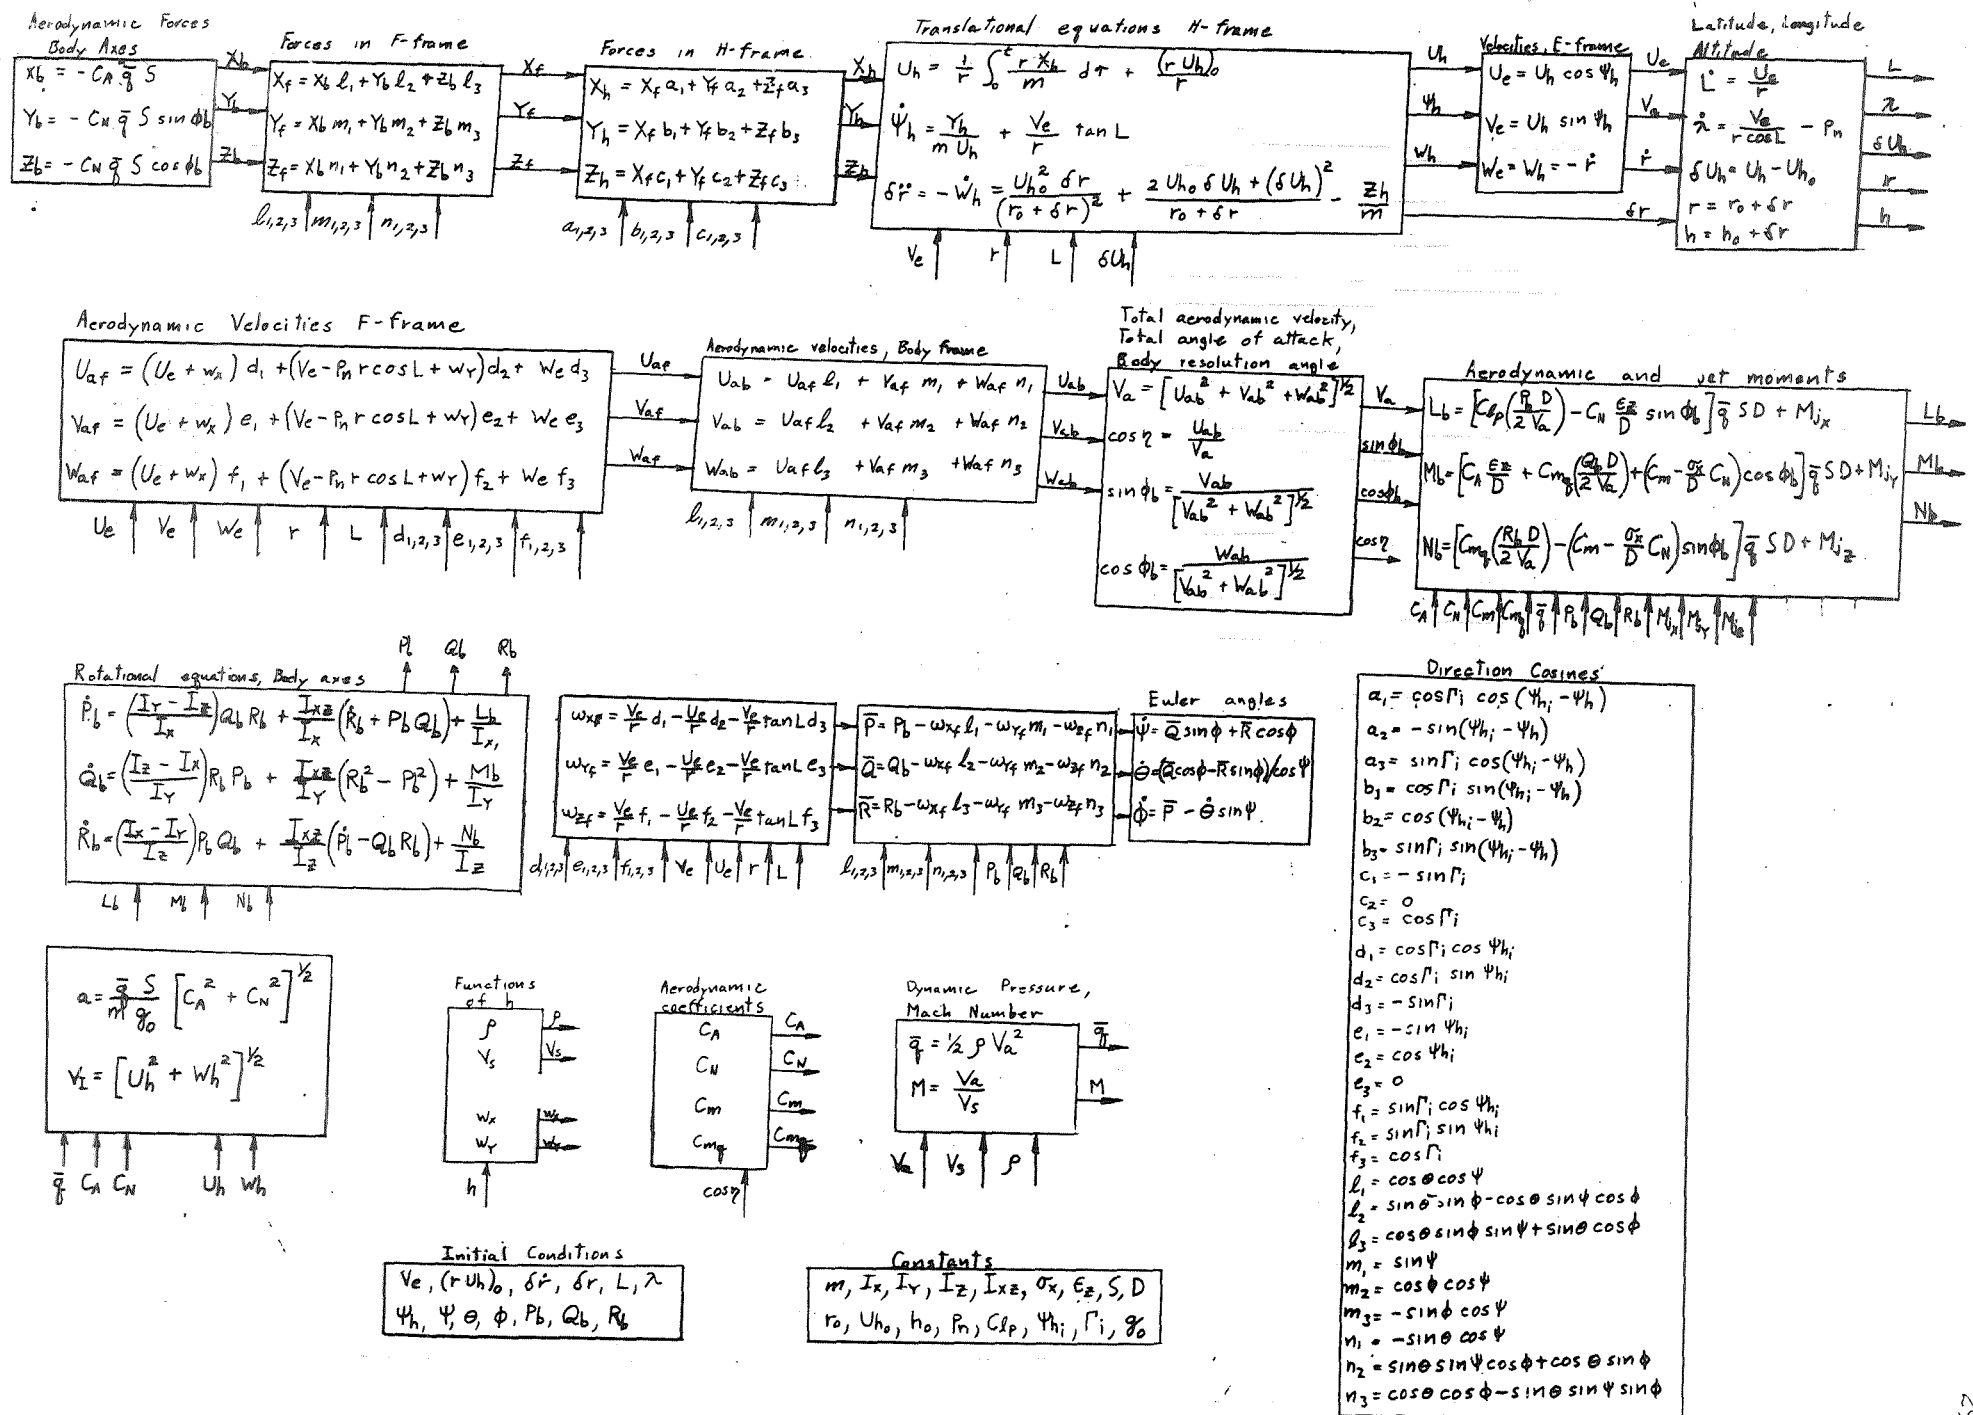 Aerodynamic Forces
Body Axes
Xb = - CA q̄ S
Yb = - CN q̄ S sin ϕb
Zb = - CN q̄ S cos ϕb
Xb
Yb
Zb
Forces in F-frame
Xf = Xb l1 + Yb l2 + Zb l3
Yf = Xb m1 + Yb m2 + Zb m3
Zf = Xb n1 + Yb n2 + Zb n3
l1,2,3 m1,2,3 n1,2,3
Xf
Yf
Zf
Forces in H-frame
Xh = Xf a1 + Yf a2 + Zf a3
Yh = Xf b1 + Yf b2 + Zf b3
Zh = Xf c1 + Yf c2 + Zf c3
a1,2,3 b1,2,3 c1,2,3
Xh
Yh
Zh
Translational equations H-frame
Uh = 1/r ∫0^t r Xh/m dτ + (r Uh)0/r
ψ̇h = Yh/(m Uh) + Ve/r tan L
δr̈ = -Ẇh = Uho² δr/(r0 + δr)² + (2 Uho δUh + (δUh)²)/(r0 + δr) - Zh/m
Ve r L δUh
Uh
ψh
Wh
δr
Velocities, E-frame
Ue = Uh cos ψh
Ve = Uh sin ψh
We = Wh = - ṙ
Ue
Ve
ṙ
Latitude, Longitude
Altitude
L̇ = Ue/r
λ̇ = Ve/(r cos L) - Pn
δUh = Uh - Uho
r = r0 + δr
h = h0 + δr
L
λ
δUh
r
h
Aerodynamic Velocities F-frame
Uaf = (Ue + wx) d1 + (Ve - Pn r cos L + wY) d2 + We d3
Vaf = (Ue + wx) e1 + (Ve - Pn r cos L + wY) e2 + We e3
Waf = (Ue + wx) f1 + (Ve - Pn r cos L + wY) f2 + We f3
Ue Ve We r L d1,2,3 e1,2,3 f1,2,3
Uaf
Vaf
Waf
Aerodynamic velocities, Body frame
Uab = Uaf l1 + Vaf m1 + Waf n1
Vab = Uaf l2 + Vaf m2 + Waf n2
Wab = Uaf l3 + Vaf m3 + Waf n3
l1,2,3 m1,2,3 n1,2,3
Uab
Vab
Wab
Total aerodynamic velocity,
Total angle of attack,
Body resolution angle
Va = [Uab² + Vab² + Wab²]^1/2
cos η = Uab/Va
sin ϕb = Vab/[Vab² + Wab²]^1/2
cos ϕb = Wab/[Vab² + Wab²]^1/2
Va
sin ϕb
cos ϕb
cos η
Aerodynamic and jet moments
Lb = [Clp (Pb D/2 Va) - CN εz/D sin ϕb] q̄ S D + Mjx
Mb = [CA εz/D + Cmq (Qb D/2 Va) + (Cm - σx/D CN) cos ϕb] q̄ S D + MjY
Nb = [Cmq (Rb D/2 Va) - (Cm - σx/D CN) sin ϕb] q̄ S D + Mjz
CA CN Cm Cmq q̄ Pb Qb Rb Mjx MjY Mjz
Lb
Mb
Nb
Pb Qb Rb
Rotational equations, Body axes
Ṗb = ((IY - IZ)/IX) Qb Rb + IXZ/IX (Ṙb + Pb Qb) + Lb/IX
Q̇b = ((IZ - IX)/IY) Rb Pb + IXZ/IY (Rb² - Pb²) + Mb/IY
Ṙb = ((IX - IY)/IZ) Pb Qb + IXZ/IZ (Ṗb - Qb Rb) + Nb/IZ
Lb Mb Nb
ωxf = Ve/r d1 - Ue/r d2 - Ve/r tan L d3
ωYf = Ve/r e1 - Ue/r e2 - Ve/r tan L e3
ωzf = Ve/r f1 - Ue/r f2 - Ve/r tan L f3
d1,2,3 e1,2,3 f1,2,3 Ve Ue r L
P̄ = Pb - ωxf l1 - ωYf m1 - ωzf n1
Q̄ = Qb - ωxf l2 - ωYf m2 - ωzf n2
R̄ = Rb - ωxf l3 - ωYf m3 - ωzf n3
l1,2,3 m1,2,3 n1,2,3 Pb Qb Rb
Euler angles
ψ̇ = Q̄ sin ϕ + R̄ cos ϕ
θ̇ = (Q̄ cos ϕ - R̄ sin ϕ)/cos ψ
ϕ̇ = P̄ - θ̇ sin ψ
Direction Cosines
a1 = cos Γi cos (ψhi - ψh)
a2 = - sin(ψhi - ψh)
a3 = sin Γi cos(ψhi - ψh)
b1 = cos Γi sin(ψhi - ψh)
b2 = cos (ψhi - ψh)
b3 = sin Γi sin(ψhi - ψh)
c1 = - sin Γi
c2 = 0
c3 = cos Γi
d1 = cos Γi cos ψhi
d2 = cos Γi sin ψhi
d3 = - sin Γi
e1 = - sin ψhi
e2 = cos ψhi
e3 = 0
f1 = sin Γi cos ψhi
f2 = sin Γi sin ψhi
f3 = cos Γi
l1 = cos θ cos ψ
l2 = sin θ sin ϕ - cos θ sin ψ cos ϕ
l3 = cos θ sin ϕ sin ψ + sin θ cos ϕ
m1 = sin ψ
m2 = cos ϕ cos ψ
m3 = - sin ϕ cos ψ
n1 = - sin θ cos ψ
n2 = sin θ sin ψ cos ϕ + cos θ sin ϕ
n3 = cos θ cos ϕ - sin θ sin ψ sin ϕ
a = q̄ S/(m g0) [CA² + CN²]^1/2
VI = [Uh² + Wh²]^1/2
q̄ CA CN Uh Wh
Functions
of h
ρ
Vs
wx
wY
ρ
Vs
wx
wY
h
Aerodynamic
coefficients
CA
CN
Cm
Cmq
CA
CN
Cm
Cmq
cos η
Dynamic Pressure,
Mach Number
q̄ = 1/2 ρ Va²
M = Va/Vs
q̄
M
Va Vs ρ
Initial Conditions
Ve, (r Uh)0, δṙ, δr, L, λ
ψh, ψ, θ, ϕ, Pb, Qb, Rb
Constants
m, IX, IY, IZ, IXZ, σx, εz, S, D
r0, Uho, h0, Pn, Clp, ψhi, Γi, g0